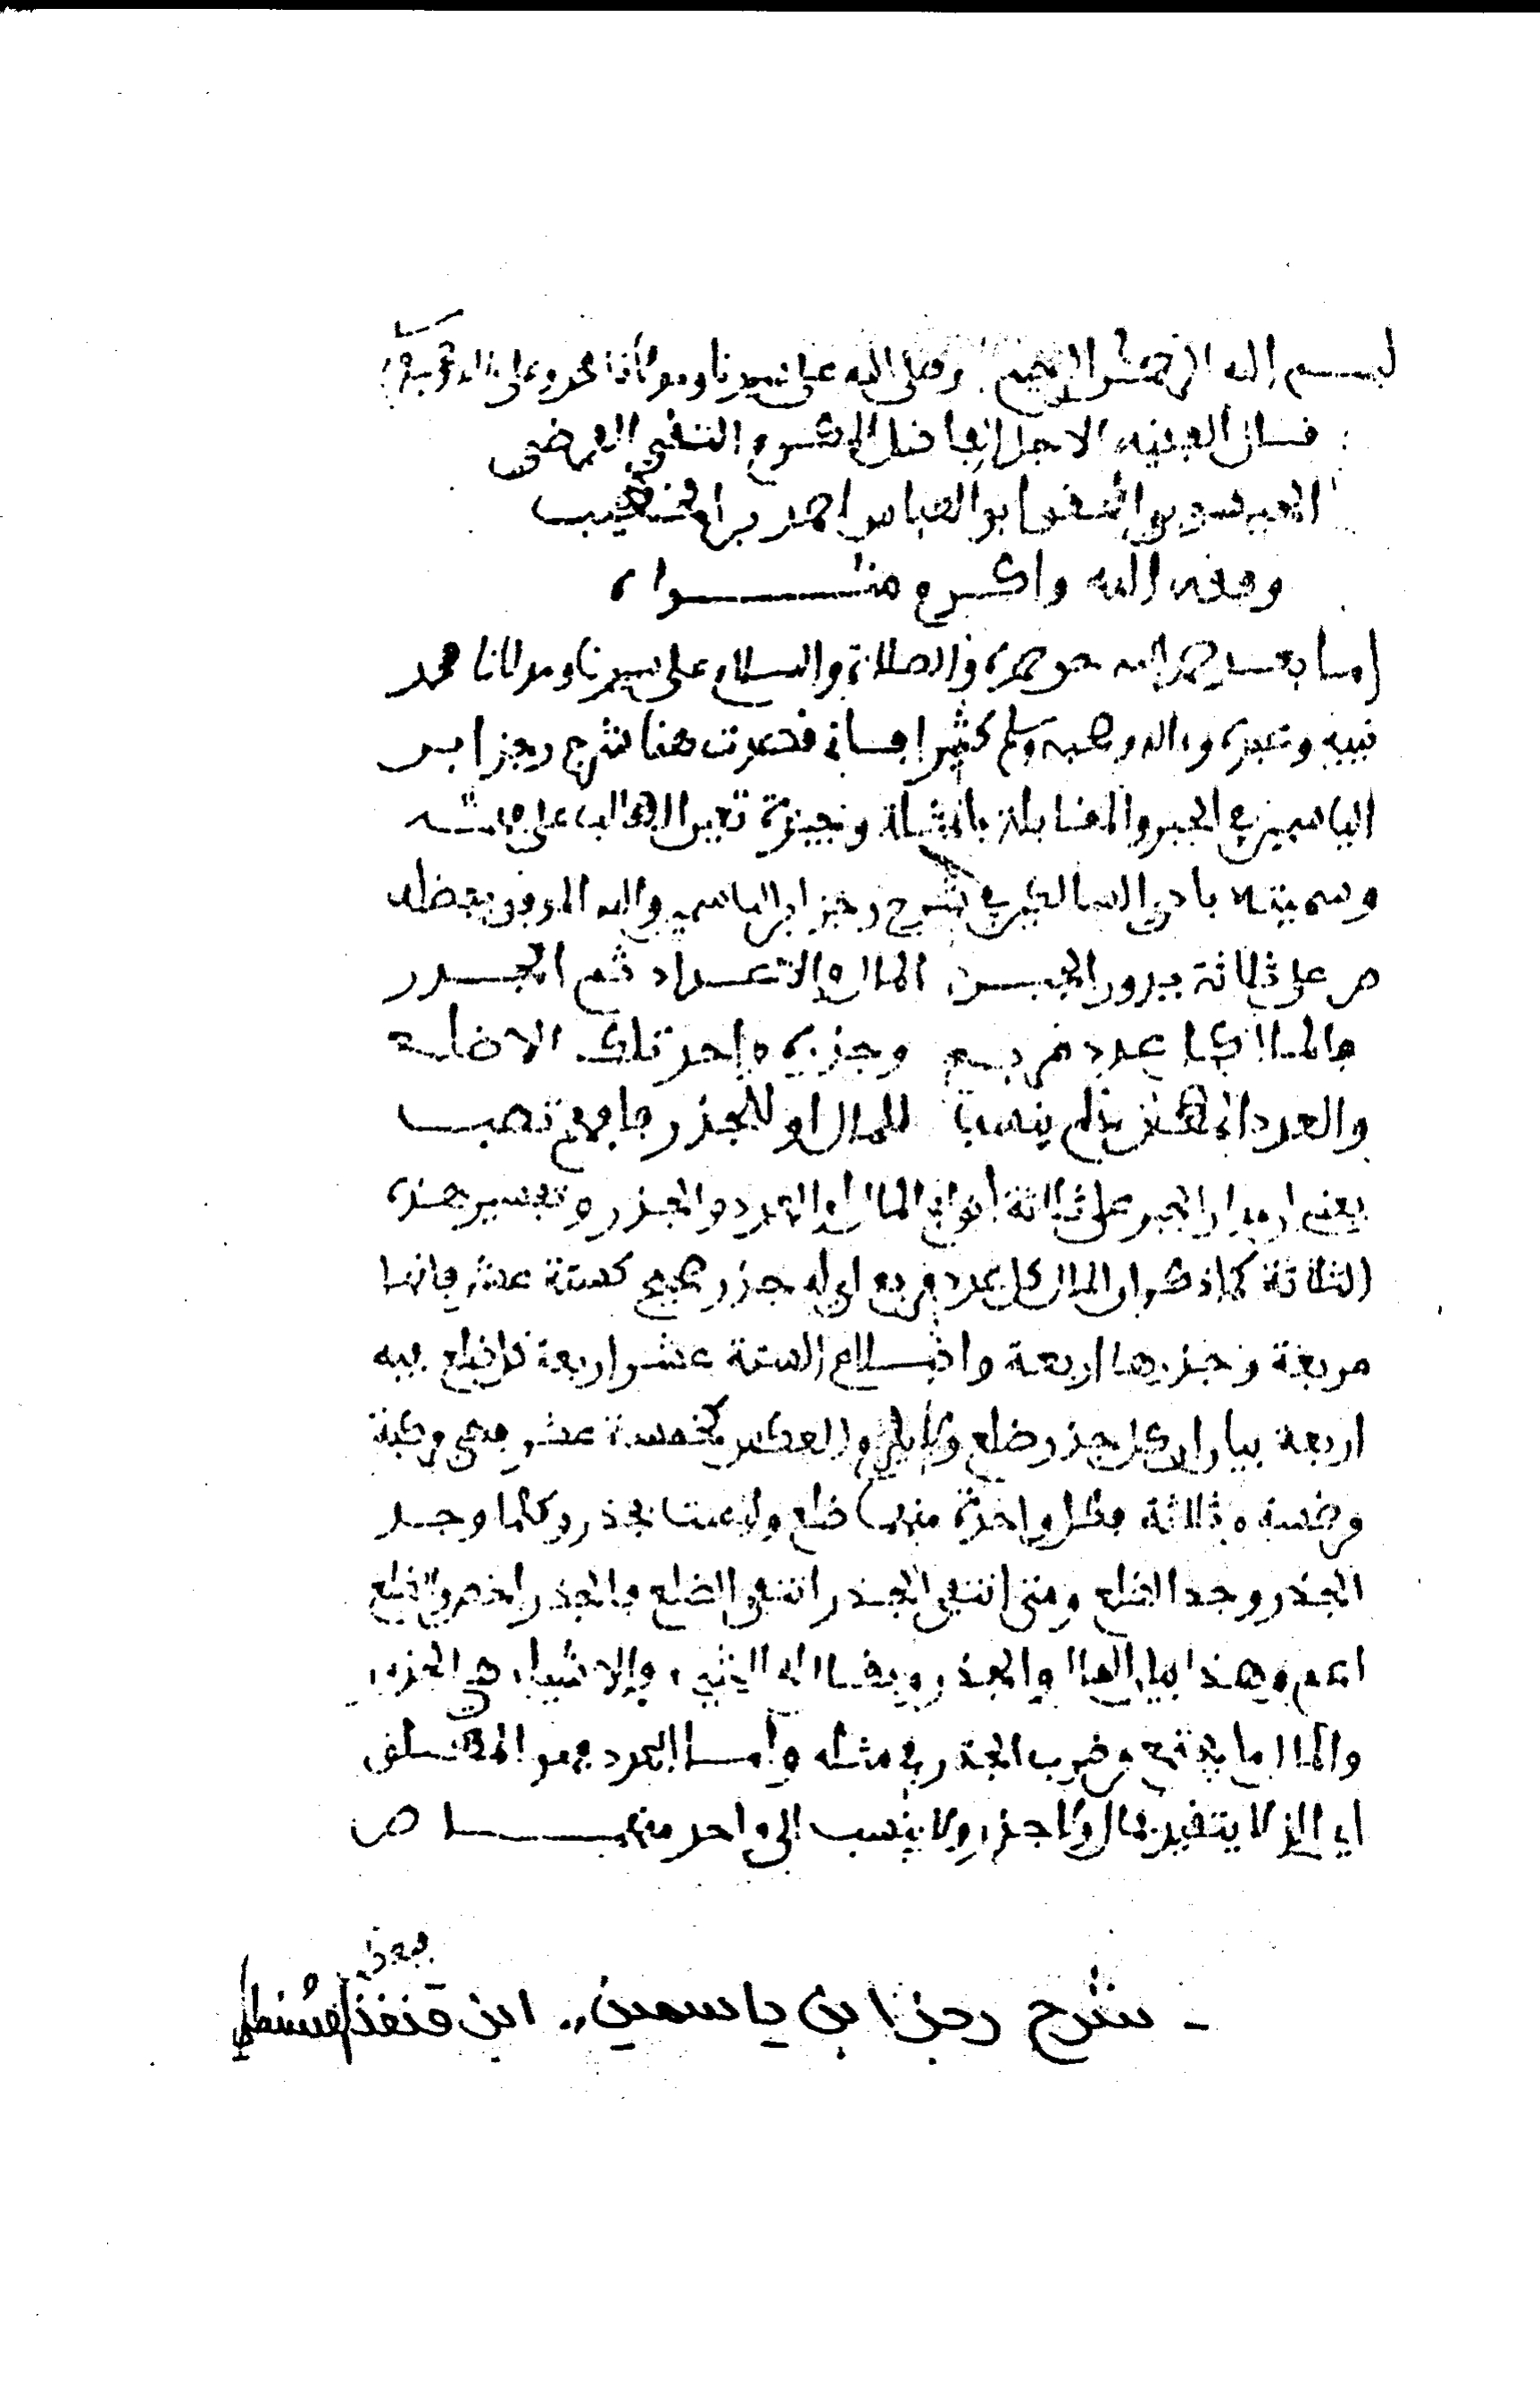 بسم الله الرحمن الرحيم وصلى الله على سيدنا ومولانا محمد وعلى اله وصحبه
قال الفقيه الاجل الفاضل المكرم التقي الفرضي
ابو العباس احمد بن الخطيب
رحمه الله واكرم مثواه
اما بعد حمد الله حق حمده والصلاة والسلام على سيدنا ومولانا محمد
نبيه وعبده واله وصحبه وسلم كثيرا فاني قصدت هنا شرح رجز ابن
الياسمين في الجبر والمقابلة بامثلة وجيزة تعين الطالب على
وسميته مبادي السالكين في شرح رجز ابن الياسمين والله الموفق بفضله
ص على ثلاثة يدور الجبر المال والاعداد ثم الجذر
فالمال كل عدد مربع وجذره واحد تلك الاضلع
والعدد المطلق ما لم ينسب للمال او للجذر فافهم تصب
يعني ان مدار الجبر على ثلاثة انواع المال والعدد والجذر وتفسير هذه
الثلاثة كما ذكر ان المال كل عدد مربع اي له جذر صحيح كستة عشر فانها
مربعة وجذرها اربعة واضلاع الستة عشر اربعة لان ضلع فيه
اربعة فبان ان كل جذر ضلع ولا يلزم العكس كخمسة عشر فهي مركبة
من خمسة وثلاثة فكل واحدة منهما ضلع وليست بجذر وكلما وجد
الجذر وجد الضلع ومتى انتفى الجذر انتفى الضلع فالجذر اخص والضلع
اعم وهذا بيان المال والجذر ويقال له الشيء والاشياء هي الجذور
والمال ما يجتمع من ضرب الجذر في مثله واما العدد فهو المطلق
اي الذي لا يتقيد بمال ولا جذر ولا ينسب الى واحد منهما ص
- شرح رجز ابن ياسمين،، ابن قنفذ القسنطيني